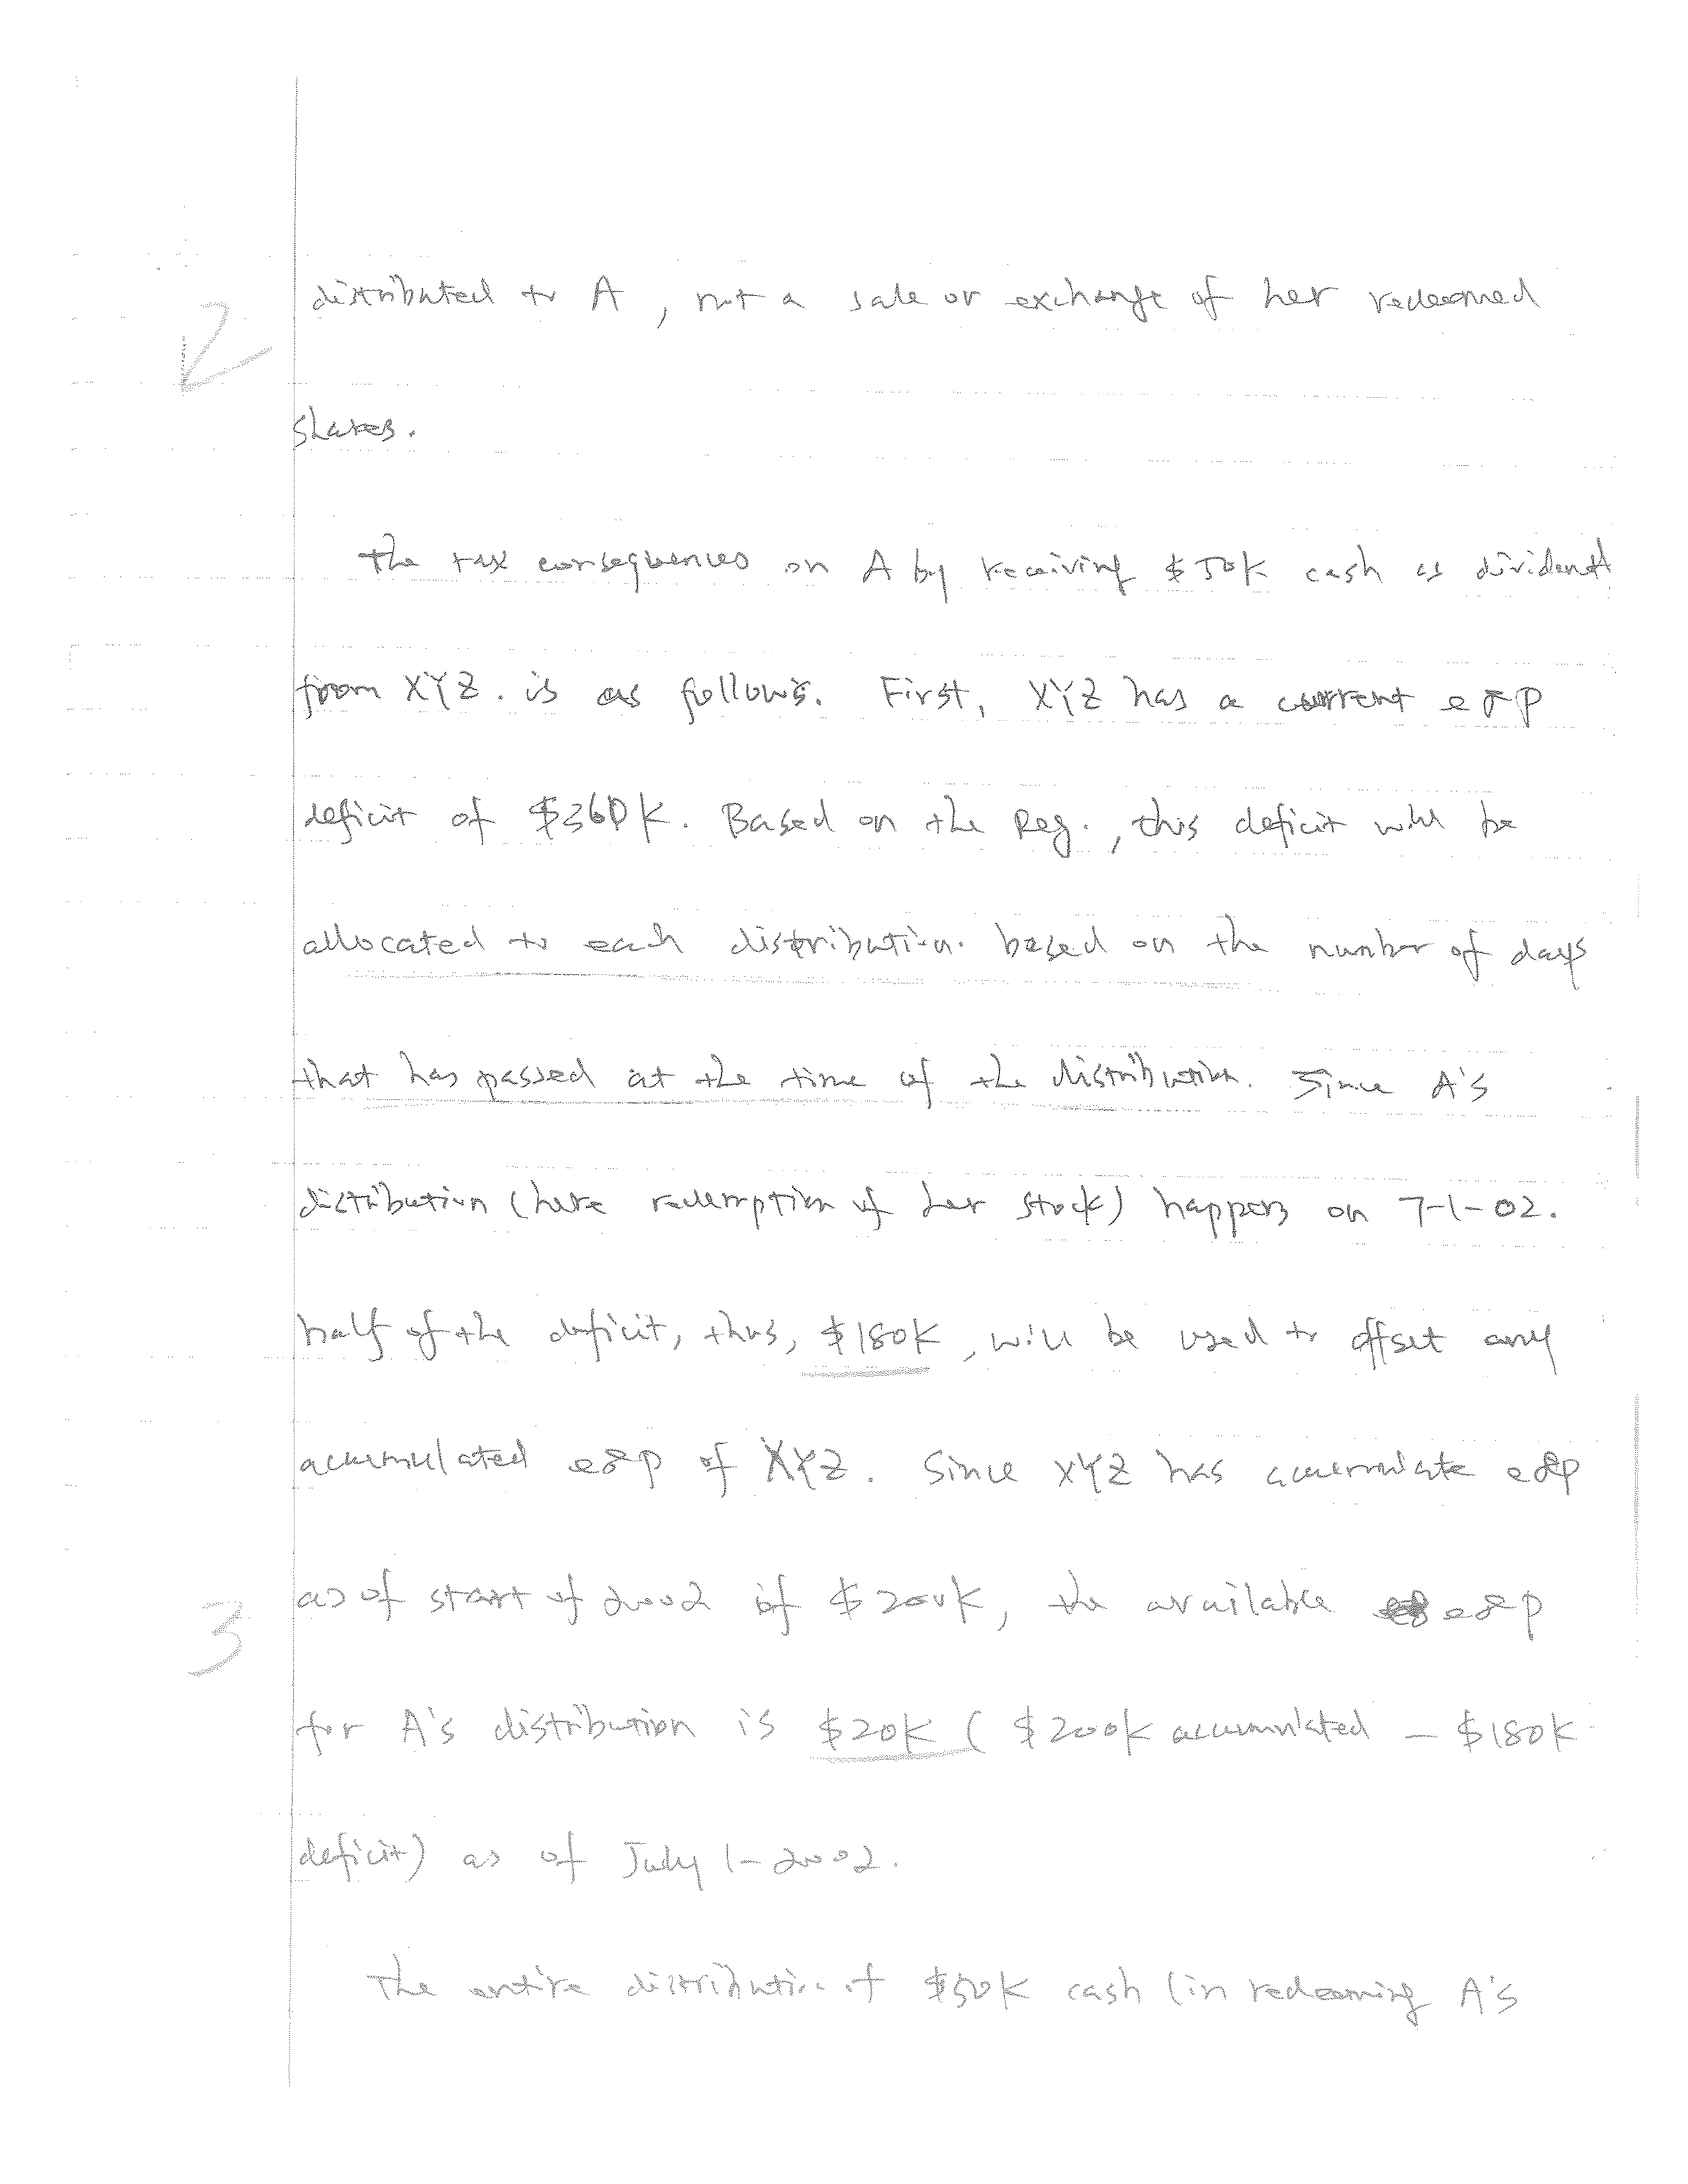 distributed to A, not a sale or exchange of her redeemed
2
shares.
The tax consequences on A by receiving $50K cash as dividend
from XYZ. is as follows. First, XYZ has a current e&p
deficit of $360K. Based on the Reg., this deficit will be
allocated to each distribution. based on the number of days
that has passed at the time of the distribution. Since A's
distribution (here redemption of her stock) happens on 7-1-02.
half of the deficit, thus, $180K, will be used to offset any
accumulated e&p of XYZ. Since XYZ has accumulate e&p
as of start of 2002 of $200K, the available e&p
3
for A's distribution is $20K ( $200K accumulated - $180K
deficit) as of July 1-2002.
The entire distribution of $50K cash (in redeeming A's